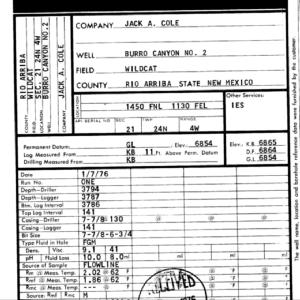 COMPANY JACK A. COLE
WELL BURRO CANYON NO. 2
FIELD WILDCAT
COUNTY RIO ARRIBA STATE NEW MEXICO
RIO ARRIBA
WILDCAT
SEC. 21 24N 4W
BURRO CANYON NO. 2
JACK A. COLE
COUNTY
FIELD
LOCATION
WELL
COMPANY
LOCATION
1450 FNL 1130 FEL
Other Services:
IES
API SERIAL NO SEC TWP RANGE
21 24N 4W
Permanent Datum: GL , Elev. 6854
Log Measured From KB 11 Ft. Above Perm. Datum
Drilling Measured From KB
Elev.: K.B. 6865
D.F. 6864
G.L. 6854
Date 1/7/76
Run No. ONE
Depth-Driller 3794
Depth-Logger 3787
Btm. Log Interval 3786
Top Log Interval 141
Casing-Driller 7-7/8@130 @ @ @
Casing-Logger 141
Bit Size 7-7/8-6-3/4
Type Fluid in Hole FGM
Dens. Visc. 9.1 41
pH Fluid Loss 10.0 8.0 ml ml
Source of Sample FLOWLINE
Rm @ Meas. Temp. 2.02 @ 62 °F
Rmf @ Meas. Temp. 1.86 @ 62 °F
Rmc @ Meas. Temp. --- @ -- °F
Source: Rmf Rmc M
The well name, location and borehole reference data were furnished by the customer.